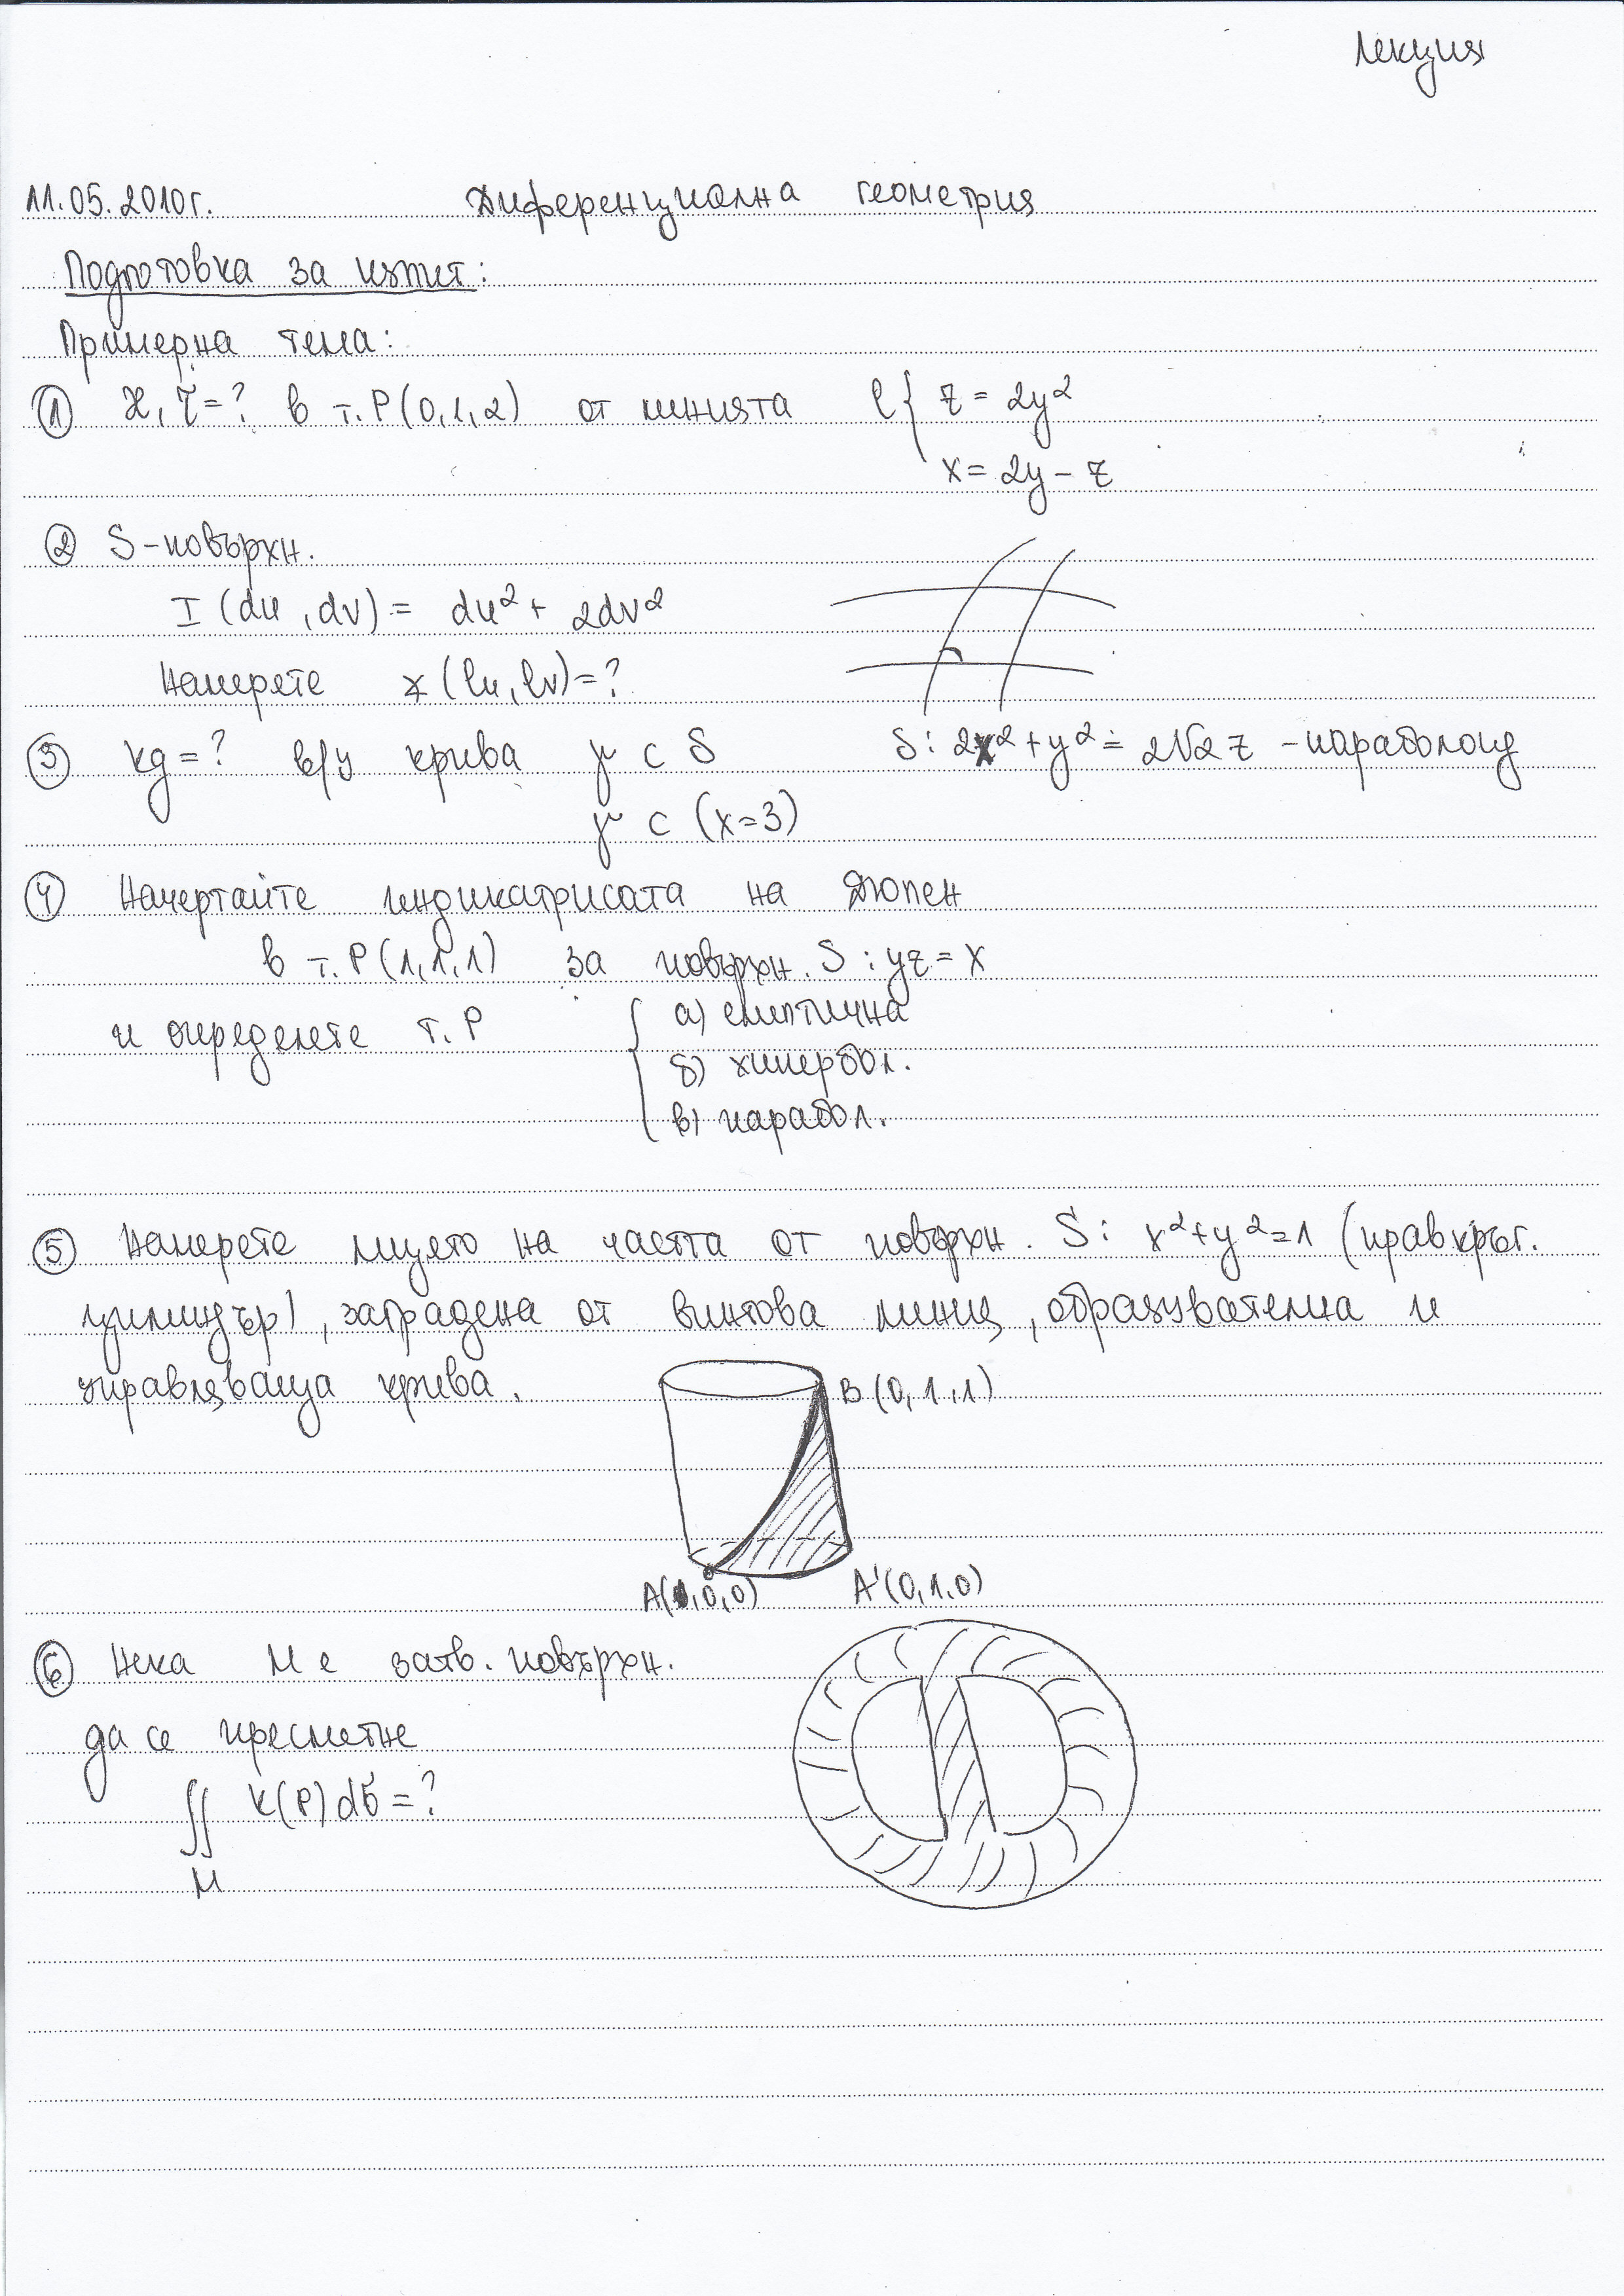 Лекция
11.05.2010г. Диференциална геометрия
Подготовка за изпит:
Примерна тема:
① ϰ, τ = ? в т. P(0,1,2) от линията l { z = 2y²
x = 2y - z
② S-повърхн.
I (du, dv) = du² + 2dv²
Намерете ∡ (lu, lv) = ?
③ kg = ? в/у крива γ ⊂ S S: 2x² + y² = 2√2 z - параболоид
γ ⊂ (x=3)
④ Начертайте индикатрисата на Дюпен
в т. P(1,1,1) за повърхн. S: yz = x
и определете т. P { а) елиптична
б) хипербол.
в) парабол.
⑤ Намерете лицето на частта от повърхн. S: x² + y² = 1 (прав кръг.
цилиндър), заградена от винтова линия, образувателна и
управляваща крива.
B (0, 1, 1)
A(1,0,0) A'(0,1,0)
⑥ Нека M е затв. повърхн.
да се пресметне
∬ K(P) dσ = ?
M